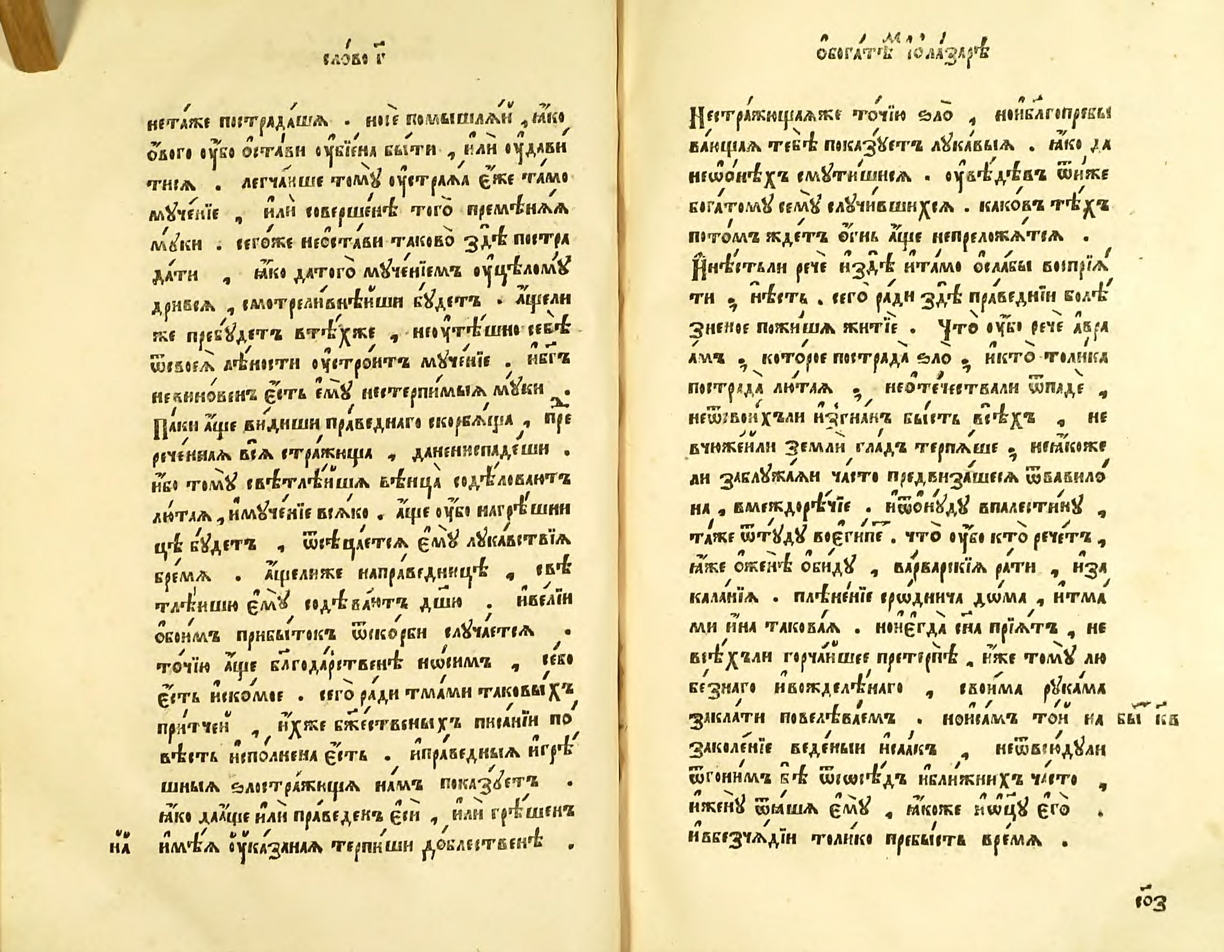 сло́во г҃
нета́же пострада́ша . но́ се помышлѧ́й , ꙗ҆́ко
ѻ҆́вого оу҆́бо ѡ҆ста́ви оу҆бїена бы́ти , и҆́лѝ оу҆дави
тисѧ . легча́ише томꙋ̀ оу҆страѧ́ѧ є҆́же та́мо
мꙋче́нїе , и҆́лѝ соверше́нѣ того̀ премѣнѧ́ѧ
мꙋ́ки . сего́же неѡ҆ста́ви таково̀ здѣ̀ постра
да́ти , ꙗ҆́ко датого̀ мꙋче́нїемъ оу҆цѣломꙋ́
дривсѧ , смотрели́внѣйши бꙋ́детъ . а҆́щели
же пребꙋ́детъ втѣ́хже , неоу҆тѣ́шно себѣ̀
ѿсвоеѧ̀ лѣ́ности оу҆стро́итъ мꙋче́нїе . и҆бг҃ъ
непови́ненъ є҆́сть є҆мꙋ̀ нестерпи́мыѧ мꙋ́ки .
Па́ки а҆́ще ви́диши пра́веднаго скорбѧ́ща , пре
рече́ннаѧ всѧ̀ стра́жища , данениспаде́ши .
и҆́бо томꙋ̀ свѣтлѣ́йшѧ вѣнца̀ содѣ́ловаютъ
лю́таѧ , и҆мꙋче́нїе всѧ́ко . а҆́ще оу҆́бо нагрѣ́шни
цѣ бꙋ́детъ , ѿсѣца́етсѧ є҆мꙋ̀ лꙋка́вствїѧ
бре́мѧ . а҆́щелиже напра́ведницѣ , свѣ
тлѣ́ишю є҆мꙋ̀ содѣва́ютъ дш҃ю . и҆ве́лїи
ѻ҆бои́мъ прибы́токъ ѿско́рби слꙋча́етсѧ .
то́чїю а҆́ще бл҃года́рственѣ но́симъ , се́бо
є҆́сть и҆ско́мое . сего̀ ра́ди тма́ми таковы́хъ
при́тчей , и҆́хже бж҃е́ственыхъ писа́нїи по́
вѣсть и҆спо́лнена є҆́сть . и҆пра́ведныѧ и҆грѣ́
шныѧ ѕлостра́жищѧ на́мъ пока́зꙋетъ .
ꙗ҆́ко даа҆́ще и҆лѝ пра́веденъ є҆сѝ , и҆лѝ грѣ́шенъ
и҆мѣ́ѧ оу҆ка́занаѧ терпи́ши до́блественѣ .
на̀
ѻ҆бога́тѣмъ і҆ ѻ҆ла́зарѣ
Нестра́жищаѧже то́чїю ѕло̀ , нои҆бл҃гопребы
ва́ющаѧ тебѣ̀ пока́зꙋетъ лꙋка́выѧ . ꙗ҆́ко да
неѡ҆́нѣхъ смꙋти́шисѧ . оу҆вѣ́дѣвъ ѿи́же
бога́томꙋ семꙋ̀ слꙋчи́вшихсѧ . како́въ тѣ́хъ
пото́мъ жде́тъ ѻ҆́гнь а҆́ще непрело́жатсѧ .
И҆нѣ́стьли речѐ и҆здѣ̀ и҆та́мо ѻ҆сла́бы воспрїѧ́
ти ; нѣ́сть . сего̀ ра́ди здѣ̀ пра́веднїи болѣ́
зненое пожи́шѧ житїѐ . Что̀ оу҆́бо речѐ а҆вра
а́мъ ; кото́рое пострада̀ ѕло̀ ; и҆кто̀ толи́ка
пострада̀ лю́таѧ ; неѻ҆те́чествали ѿпадѐ ,
неѿсвои́хъли и҆згна́нъ бы́сть всѣ́хъ , не
вчюже́йли землѝ гла́дъ терпѧ́ше ; неꙗ҆́коже
ли заблꙋжа́ѧи ча́сто предвиза́шесѧ ѿвавило́
на , вмеждорѣ́чїе . и҆ѿѻ҆нꙋ́дꙋ впалести́нꙋ ,
та́же ѿтꙋ́дꙋ воє҆ги́петъ . что̀ оу҆́бо кто̀ рече́тъ ,
ꙗ҆́же ѻ҆женѣ̀ ѻ҆би́дꙋ , ва́рварскїѧ ра́ти , и҆за
кала́нїѧ . плѣне́нїе срѡ́днича до́ма , и҆тма́
ми и҆́на такова́ѧ . нои҆є҆гда̀ сн҃а прїѧ́тъ , не
всѣ́хъли горча́ишее претерпѣ̀ , и҆́же томꙋ̀ лю
бе́знаго и҆вожделѣ́ннаго , свои́ма рꙋка́ма
закла́ти повелѣва́емъ . нои҆са́мъ то́й на
бы̀ к҃в
заколе́нїе веде́ный и҆саа́къ , неѿвсю́дꙋли
ѿгони́мъ бѣ̀ ѿсосѣ́дъ и҆бли́жнихъ ча́сто ,
и҆женꙋ̀ ѿѧ́шѧ є҆мꙋ̀ , ꙗ҆́коже и҆ѻ҆ц҃ꙋ̀ є҆го̀ .
и҆вбезча́дїи толи́ко пребы́сть вре́мѧ .
р҃оз